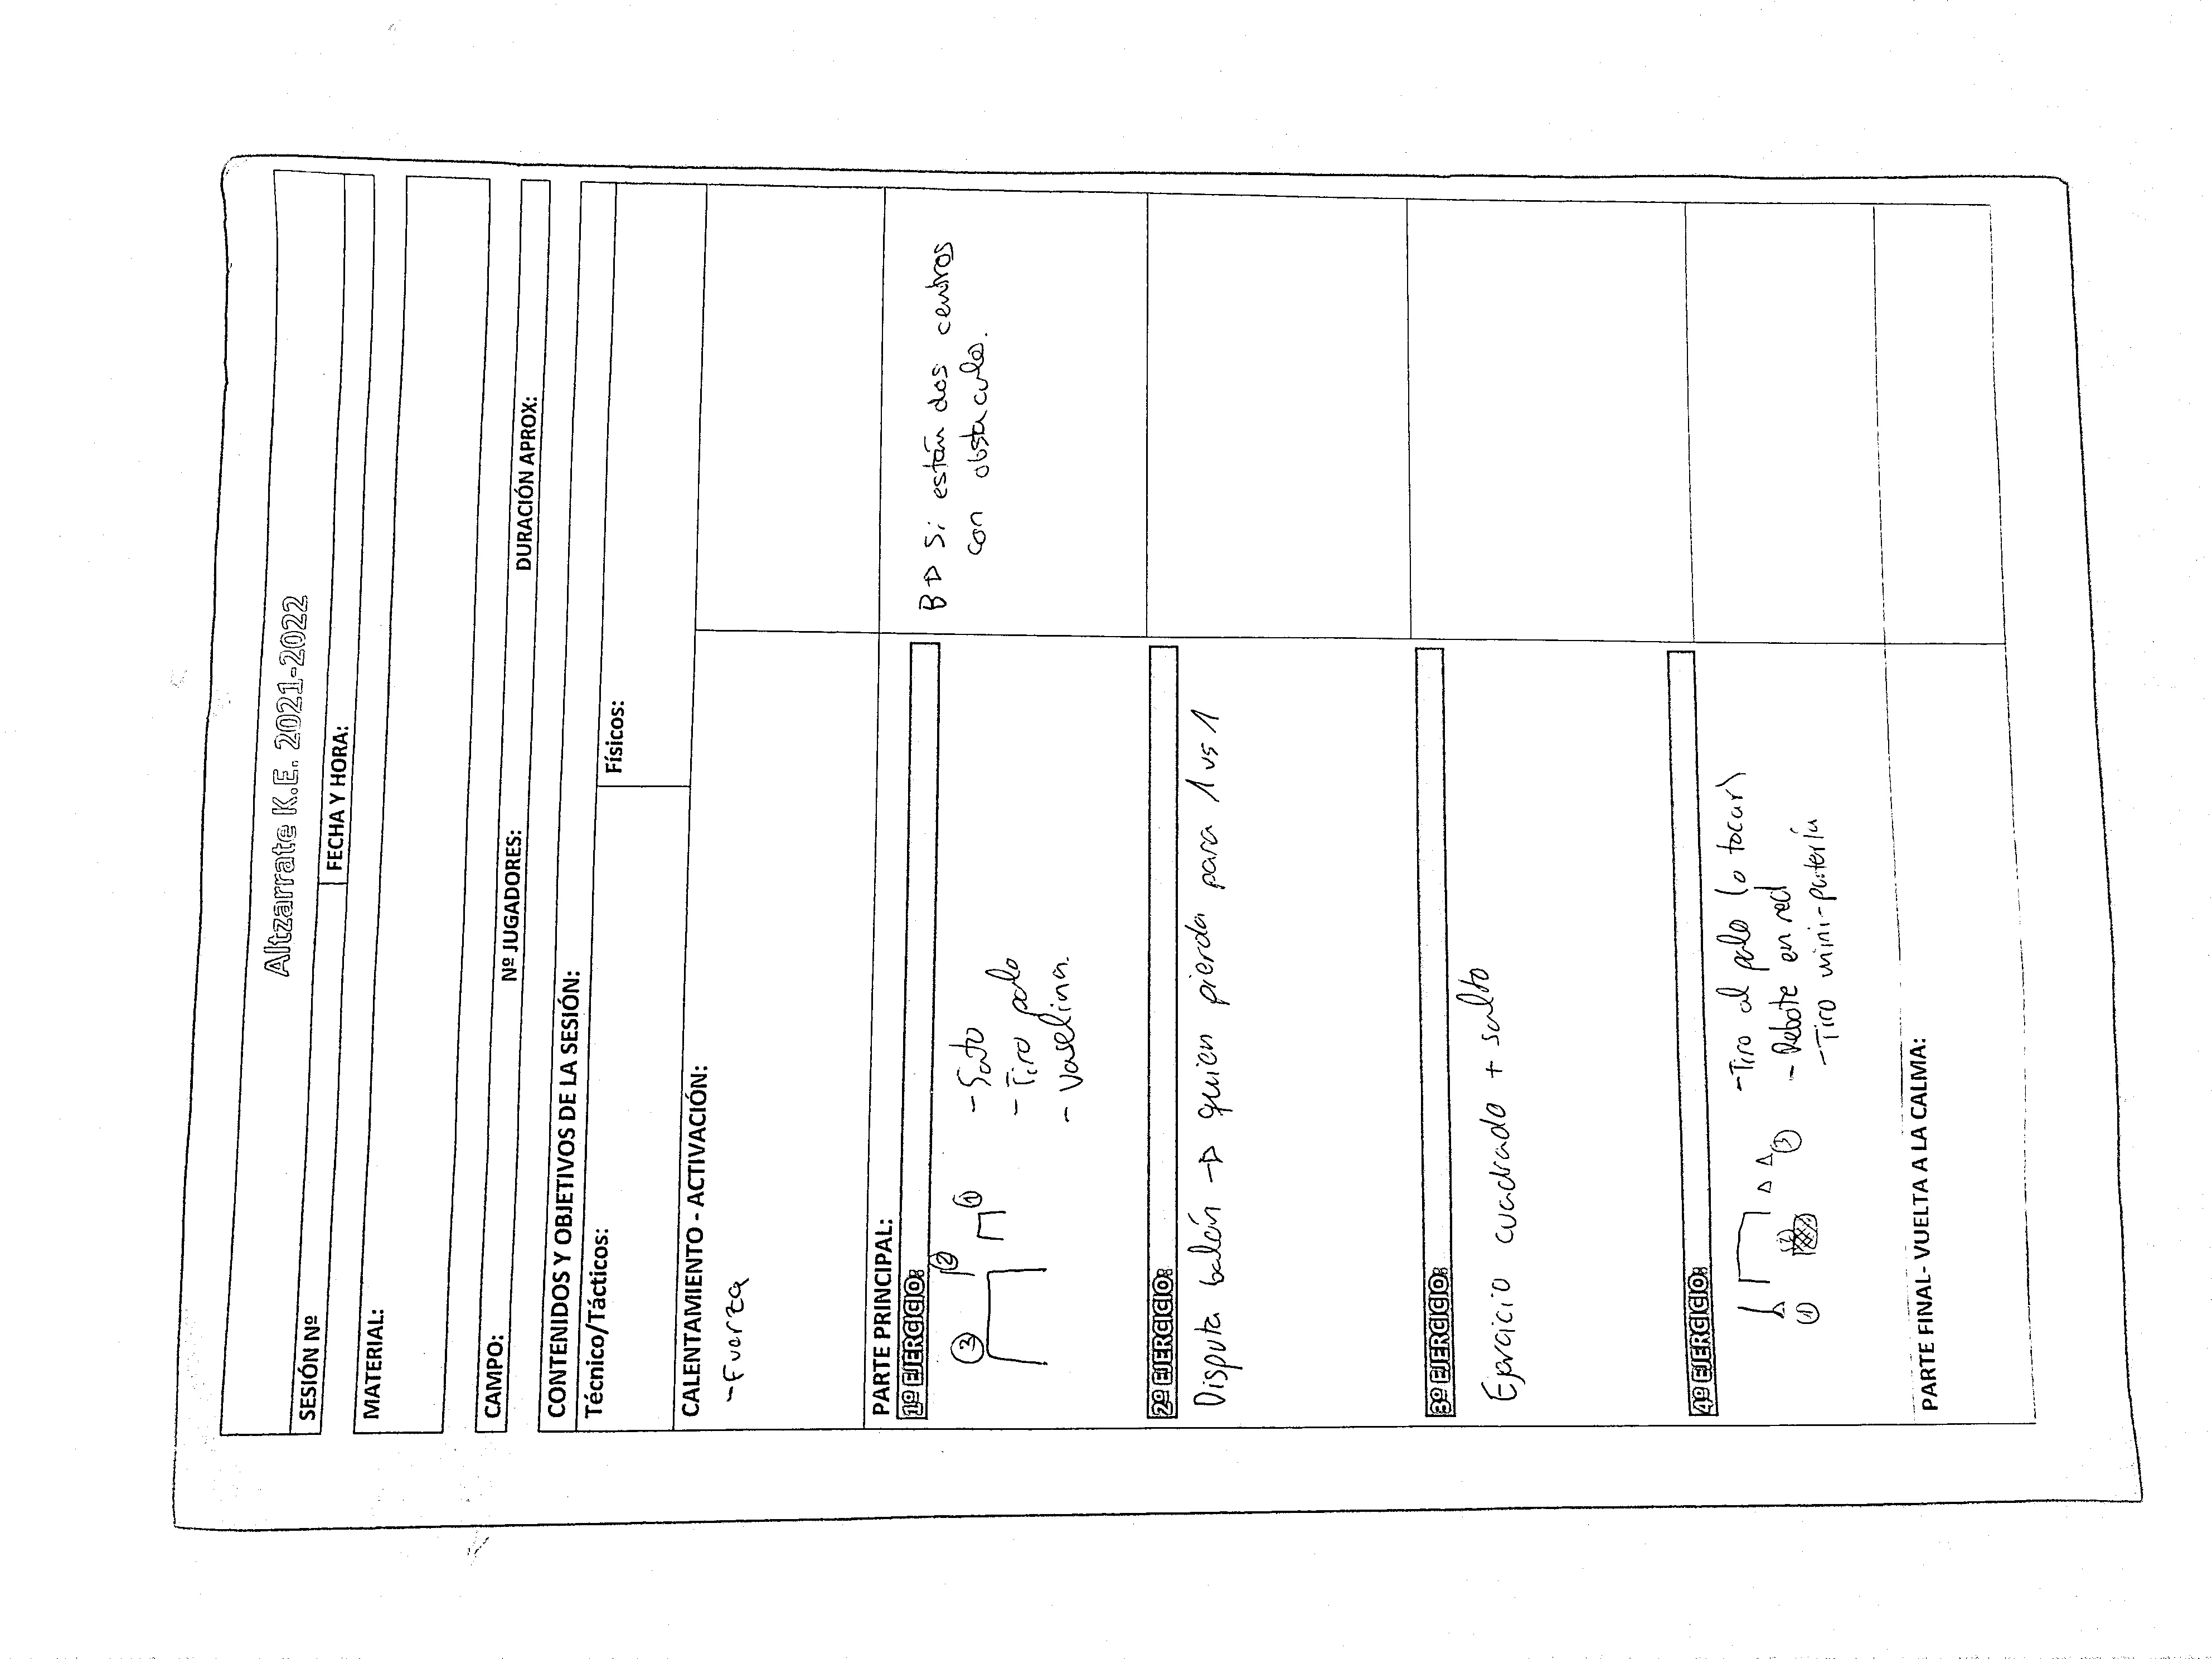 Altzarrate K.E. 2021-2022
SESIÓN Nº FECHA Y HORA:
MATERIAL:
CAMPO: Nº JUGADORES: DURACIÓN APROX:
CONTENIDOS Y OBJETIVOS DE LA SESIÓN:
Técnico/Tácticos: Físicos:
CALENTAMIENTO - ACTIVACIÓN:
- Fuerza
PARTE PRINCIPAL:
1º EJERCICIO:
3 2 1
- Sato
- Tiro palo
- Vaselina.
B → Si están dos centros
con obstaculo.
2º EJERCICIO:
Disputa balón → quien pierda para 1 vs 1
3º EJERCICIO:
Ejercicio cuadrado + salto
4º EJERCICIO:
1 2 3
- Tiro al palo (o tocar)
- Rebote en red
- Tiro mini-portería
PARTE FINAL- VUELTA A LA CALMA: